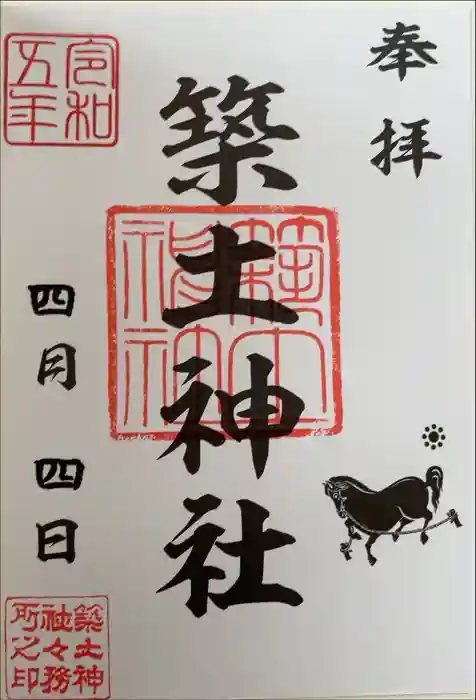 奉拝
築土神社
令和五年
四月四日
築土神社
築土神社々務所之印